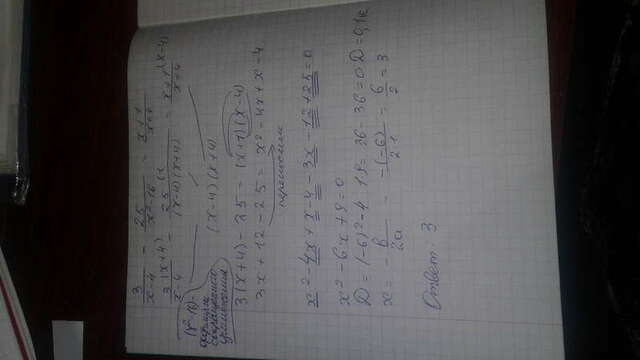 3/(x-4) - 25/(x²-16) = (x+1)/(x+4)
3(x+4)/(x-4) - 25(1/((x-4)(x+4)) = (x+1(x-4)/(x+4)
(x²-16)-
формула
сокращенного
умножения
(x-4)(x+4)
3(x+4)-25=(x+1)(x-4)
3x+12-25= x²-4x+x-4
переносим
x²-4x+x-4-3x-12+25=0
x²-6x+9=0
D=(-6)²-4·1·9=36-36=0 D=0, 1к
x= -b/2a = -(-6)/2·1 = 6/2 = 3
Ответ: 3